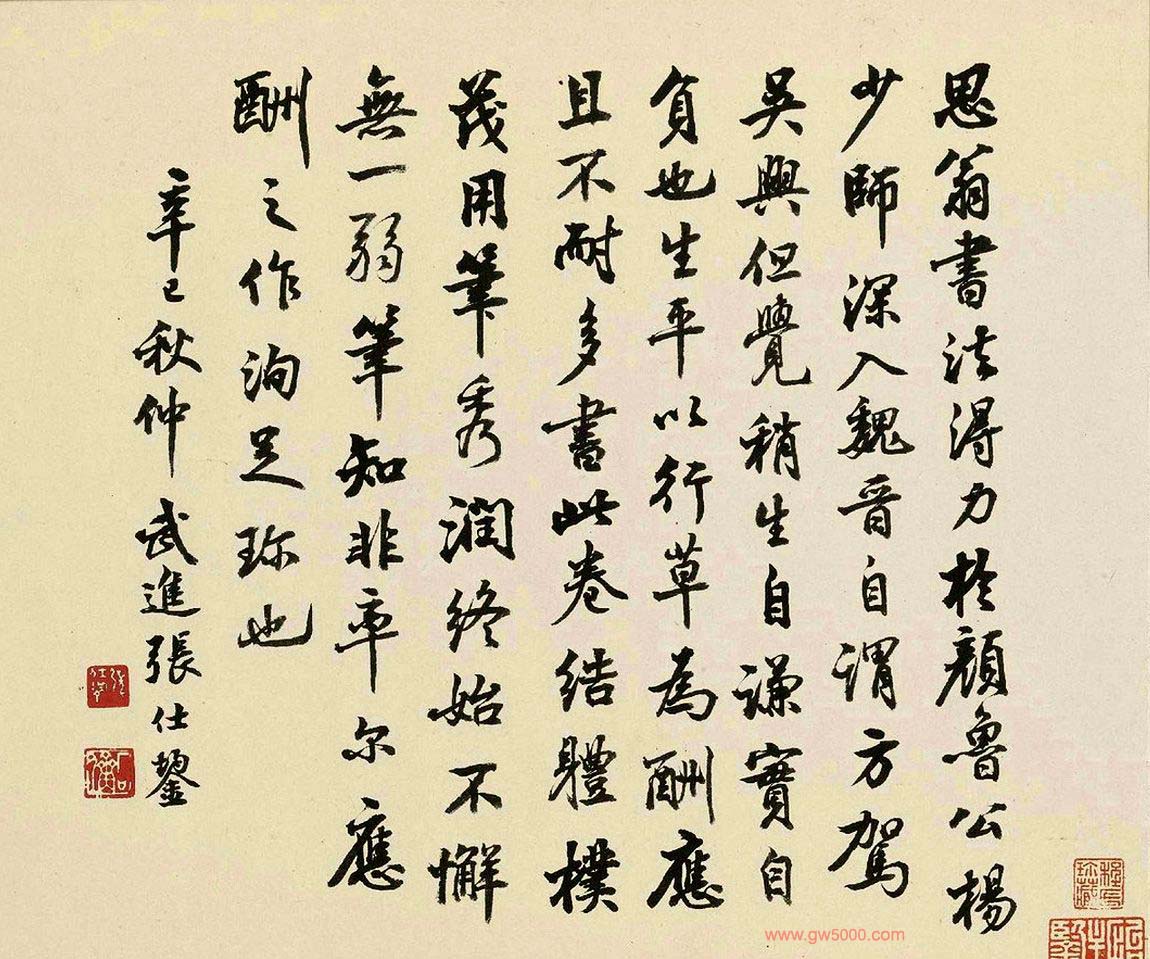 思翁書法得力於顏魯公楊
少師深入魏晉自謂方駕
吳興但覺稍生自謙實自
負也生平以行草為酬應
且不耐多書此卷結體樸
茂用筆秀潤終始不懈
無一弱筆知非率尔應
酬之作洵足珎也
辛巳秋仲武進張仕鋆
www.gw5000.com